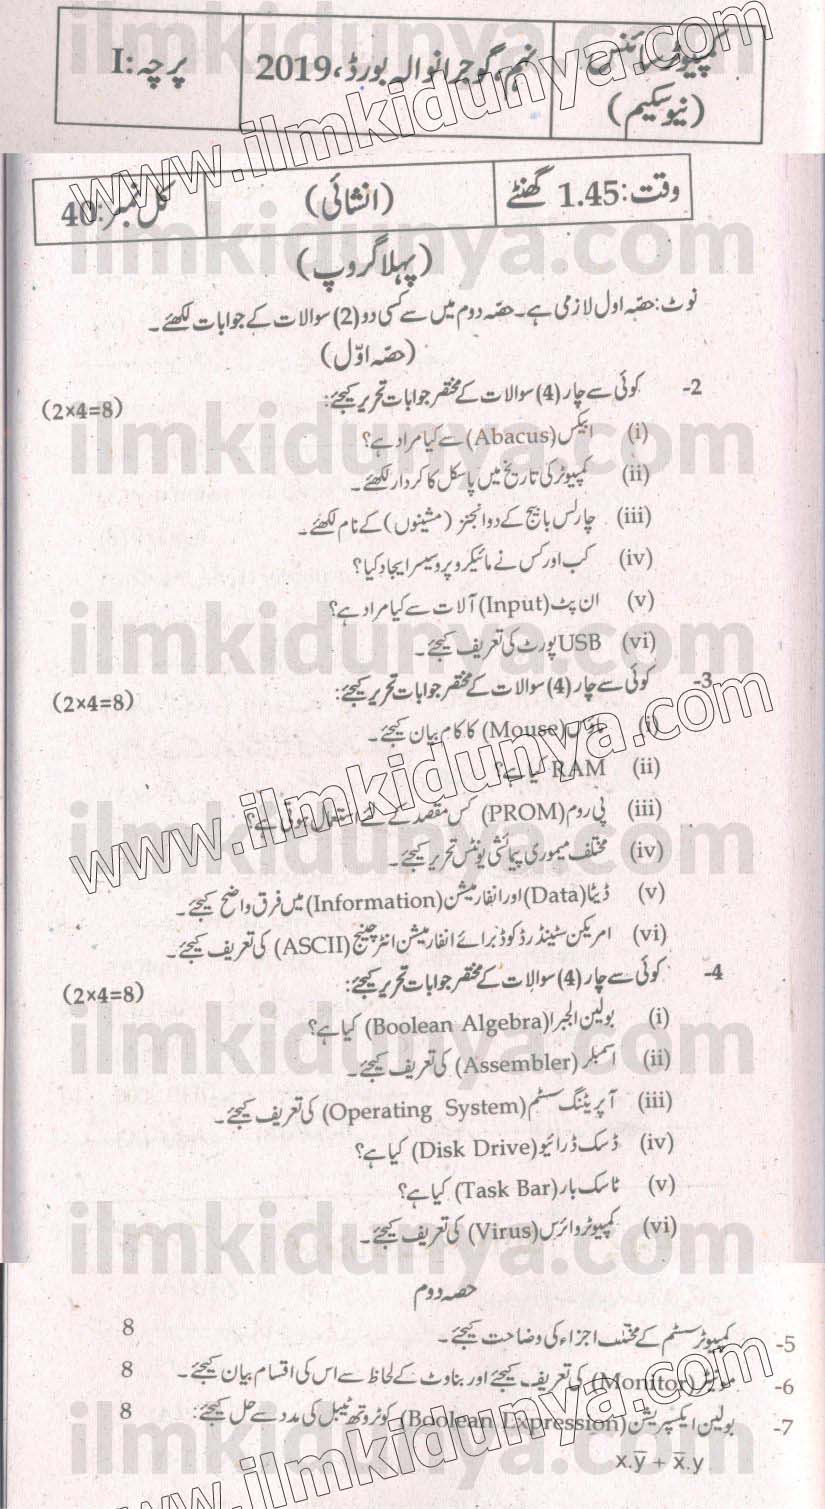 کمپیوٹر سائنس (نیو سکیم)
نہم، گوجرانوالہ بورڈ، 2019
پرچہ: I
وقت: 1.45 گھنٹے
(انشائی)
کل نمبر: 40
(پہلا گروپ)
نوٹ: حصّہ اول لازمی ہے۔ حصّہ دوم میں سے کسی دو (2) سوالات کے جوابات لکھئے۔
(حصّہ اوّل)
2- کوئی سے چار (4) سوالات کے مختصر جوابات تحریر کیجئے: (2×4=8)
(i) ابیکس (Abacus) سے کیا مراد ہے؟
(ii) کمپیوٹر کی تاریخ میں پاسکل کا کردار لکھئے۔
(iii) چارلس بابیج کے دو انجنز (مشینوں) کے نام لکھئے۔
(iv) کب اور کس نے مائیکرو پروسیسر ایجاد کیا؟
(v) ان پٹ (Input) آلات سے کیا مراد ہے؟
(vi) USB پورٹ کی تعریف کیجئے۔
3- کوئی سے چار (4) سوالات کے مختصر جوابات تحریر کیجئے: (2×4=8)
(i) ماؤس (Mouse) کا کام بیان کیجئے۔
(ii) RAM کیا ہے؟
(iii) پی روم (PROM) کس مقصد کے لئے استعمال ہوتی ہے؟
(iv) مختلف میموری پیمائشی یونٹس تحریر کیجئے۔
(v) ڈیٹا (Data) اور انفارمیشن (Information) میں فرق واضح کیجئے۔
(vi) امریکن سٹینڈرڈ کوڈ برائے انفارمیشن انٹرچینج (ASCII) کی تعریف کیجئے۔
4- کوئی سے چار (4) سوالات کے مختصر جوابات تحریر کیجئے: (2×4=8)
(i) بولین الجبرا (Boolean Algebra) کیا ہے؟
(ii) اسمبلر (Assembler) کی تعریف کیجئے۔
(iii) آپریٹنگ سسٹم (Operating System) کی تعریف کیجئے۔
(iv) ڈسک ڈرائیو (Disk Drive) کیا ہے؟
(v) ٹاسک بار (Task Bar) کیا ہے؟
(vi) کمپیوٹر وائرس (Virus) کی تعریف کیجئے۔
حصہ دوم
5- کمپیوٹر سسٹم کے مختلف اجزاء کی وضاحت کیجئے۔ 8
6- مونیٹر (Monitor) کی تعریف کیجئے اور بناوٹ کے لحاظ سے اس کی اقسام بیان کیجئے۔ 8
7- بولین ایکسپریشن (Boolean Expression) کو ٹروتھ ٹیبل کی مدد سے حل کیجئے: 8
x.y̅ + x̅.y
www.ilmkidunya.com
ilmkidunya.com
ilmkidunya.com
ilmkidunya.com
ilmkidunya.com
www.ilmkidunya.com
ilmkidunya.com
ilmkidunya.com
ilmkidunya.com
www.ilmkidunya.com